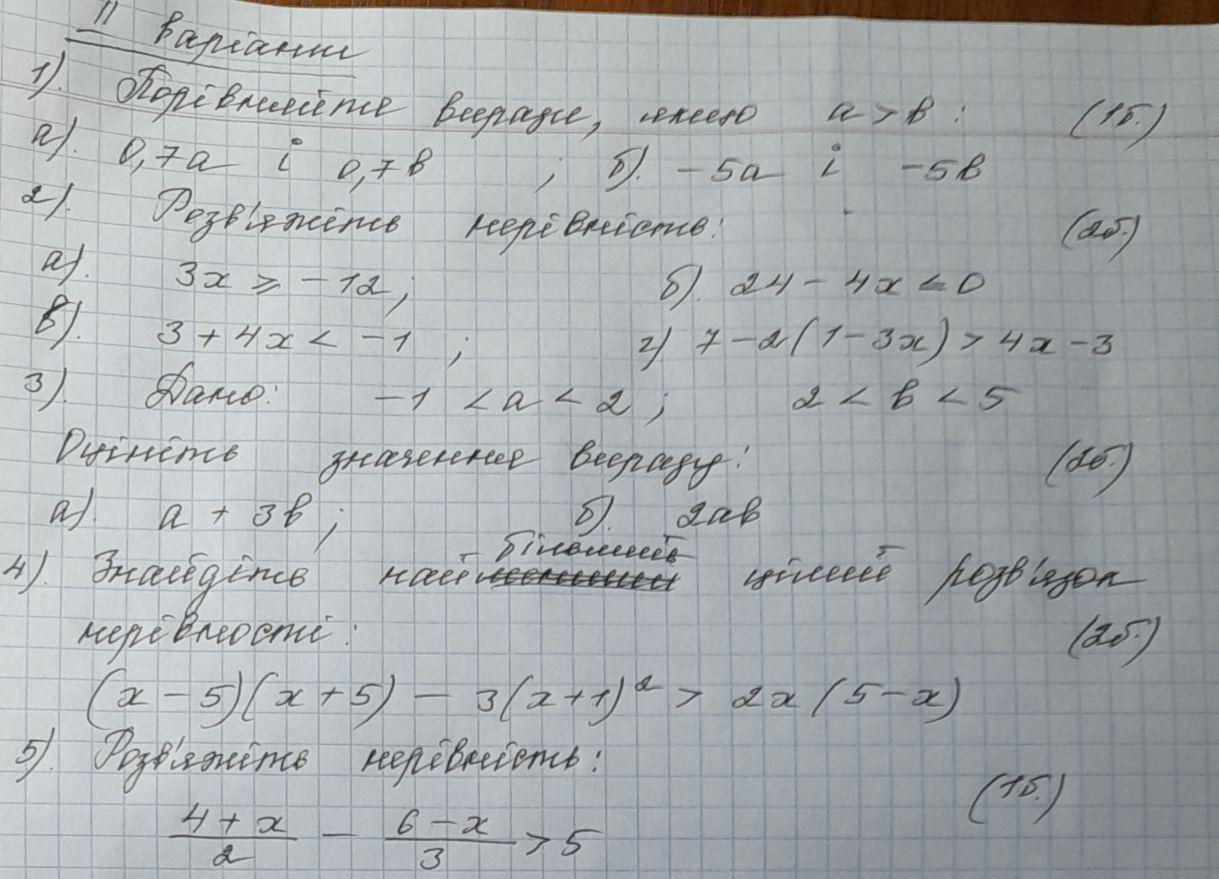 II варіант
1). Порівняйте вирази, якщо a > b : (1б.)
а). 0,7a і 0,7b ; б). -5a і -5b
2). Розв'яжіть нерівність: (2б.)
а). 3x ⩾ -12; б). 24 - 4x < 0
в). 3 + 4x < -1 ; г) 7 - 2(1 - 3x) > 4x - 3
3). Дано: -1 < a < 2 ; 2 < b < 5
Оцініть значення виразу: (2б.)
а). a + 3b ; б). 2ab
4). Знайдіть найбільший цілий розв'язок
нерівності: (2б.)
(x - 5)(x + 5) - 3(x + 1)² > 2x(5 - x)
5). Розв'яжіть нерівність: (1б.)
(4 + x)/2 - (6 - x)/3 > 5